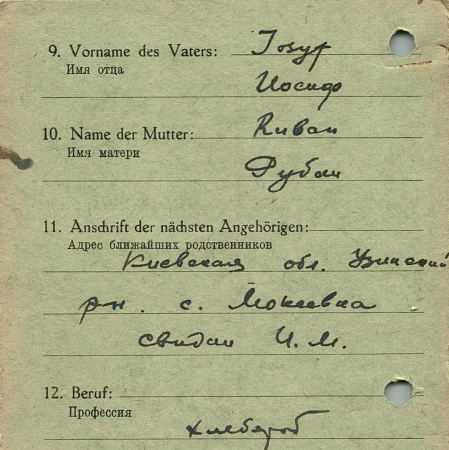 9. Vorname des Vaters: Iosyf
Имя отца
Иосиф
10. Name der Mutter: Ruban
Имя матери
Рубан
11. Anschrift der nächsten Angehörigen:
Адрес ближайших родственников
Киевская обл. Узинский
рн. с. Мокиевка
свидан И. М.
12. Beruf:
Профессия
хлебороб